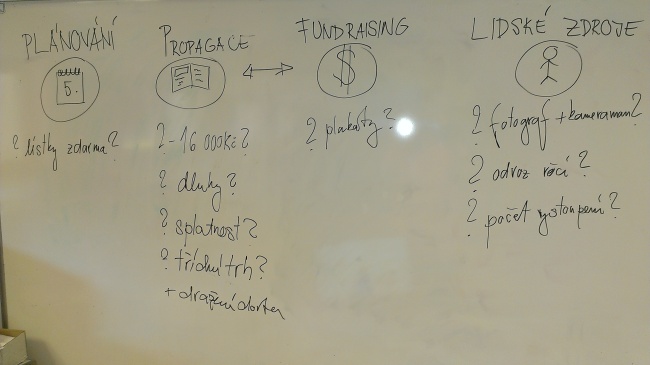 PLÁNOVÁNÍ
5.
? lístky zdarma?
PROPAGACE
?-16 000Kč?
? dluhy?
? splatnost?
? třídní trh?
+ dražení dortu
FUNDRAISING
$
? plakáty?
LIDSKÉ ZDROJE
? fotograf + kameraman?
? odvoz věcí?
? počet vystoupení?